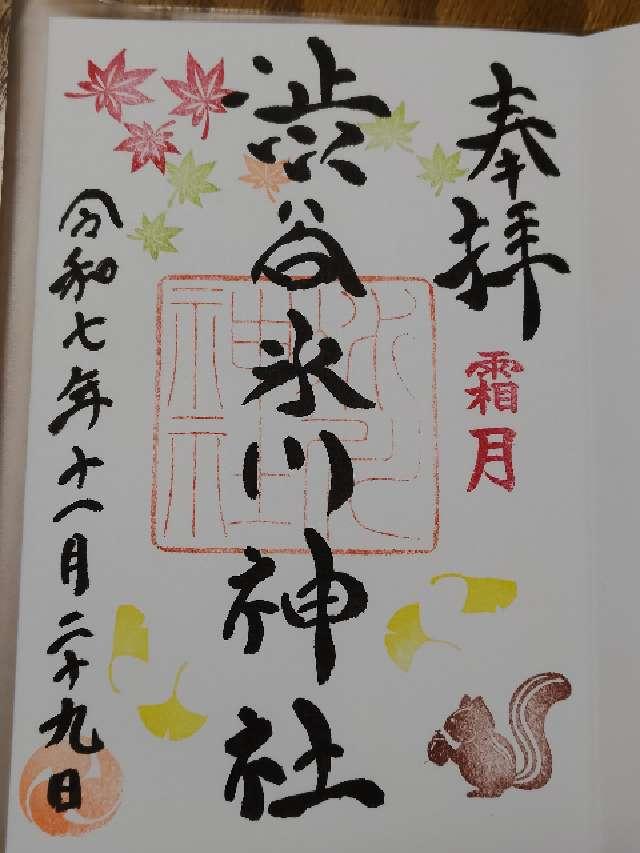 奉拝
霜月
渋谷氷川神社
令和七年十一月二十九日